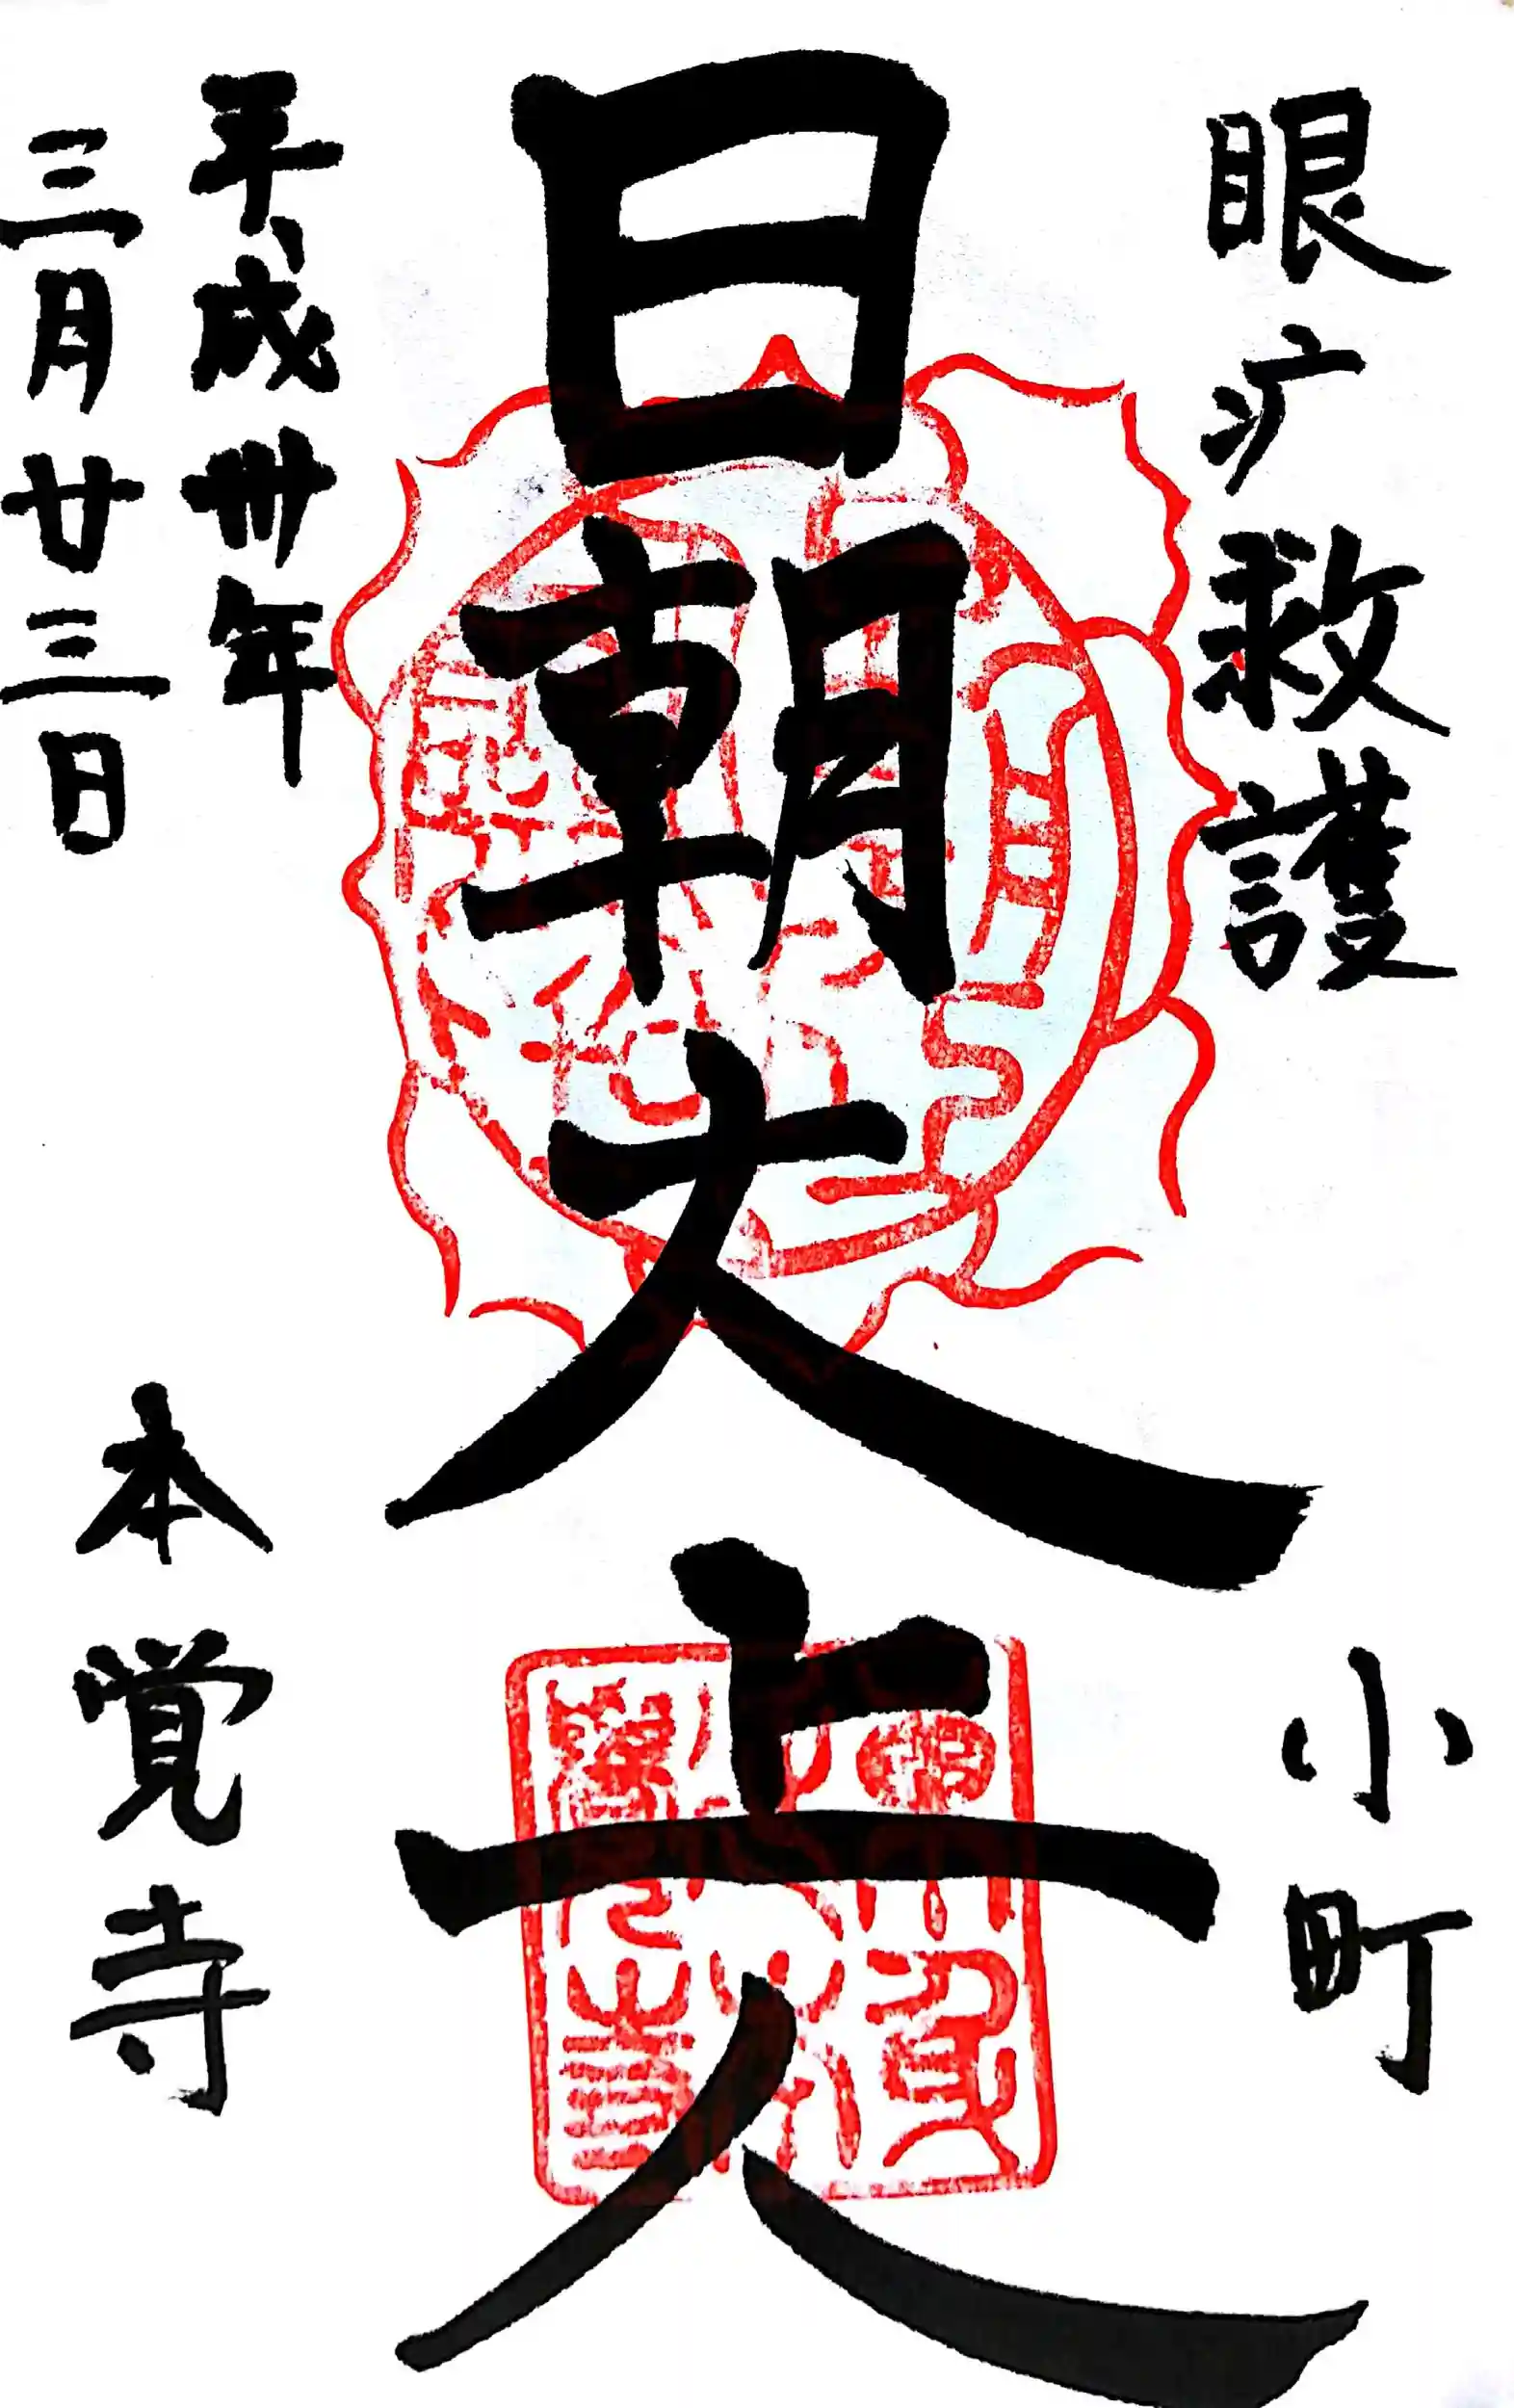 眼疒救護
小町
日朝大上人
平成卅年
三月廿三日
本覚寺